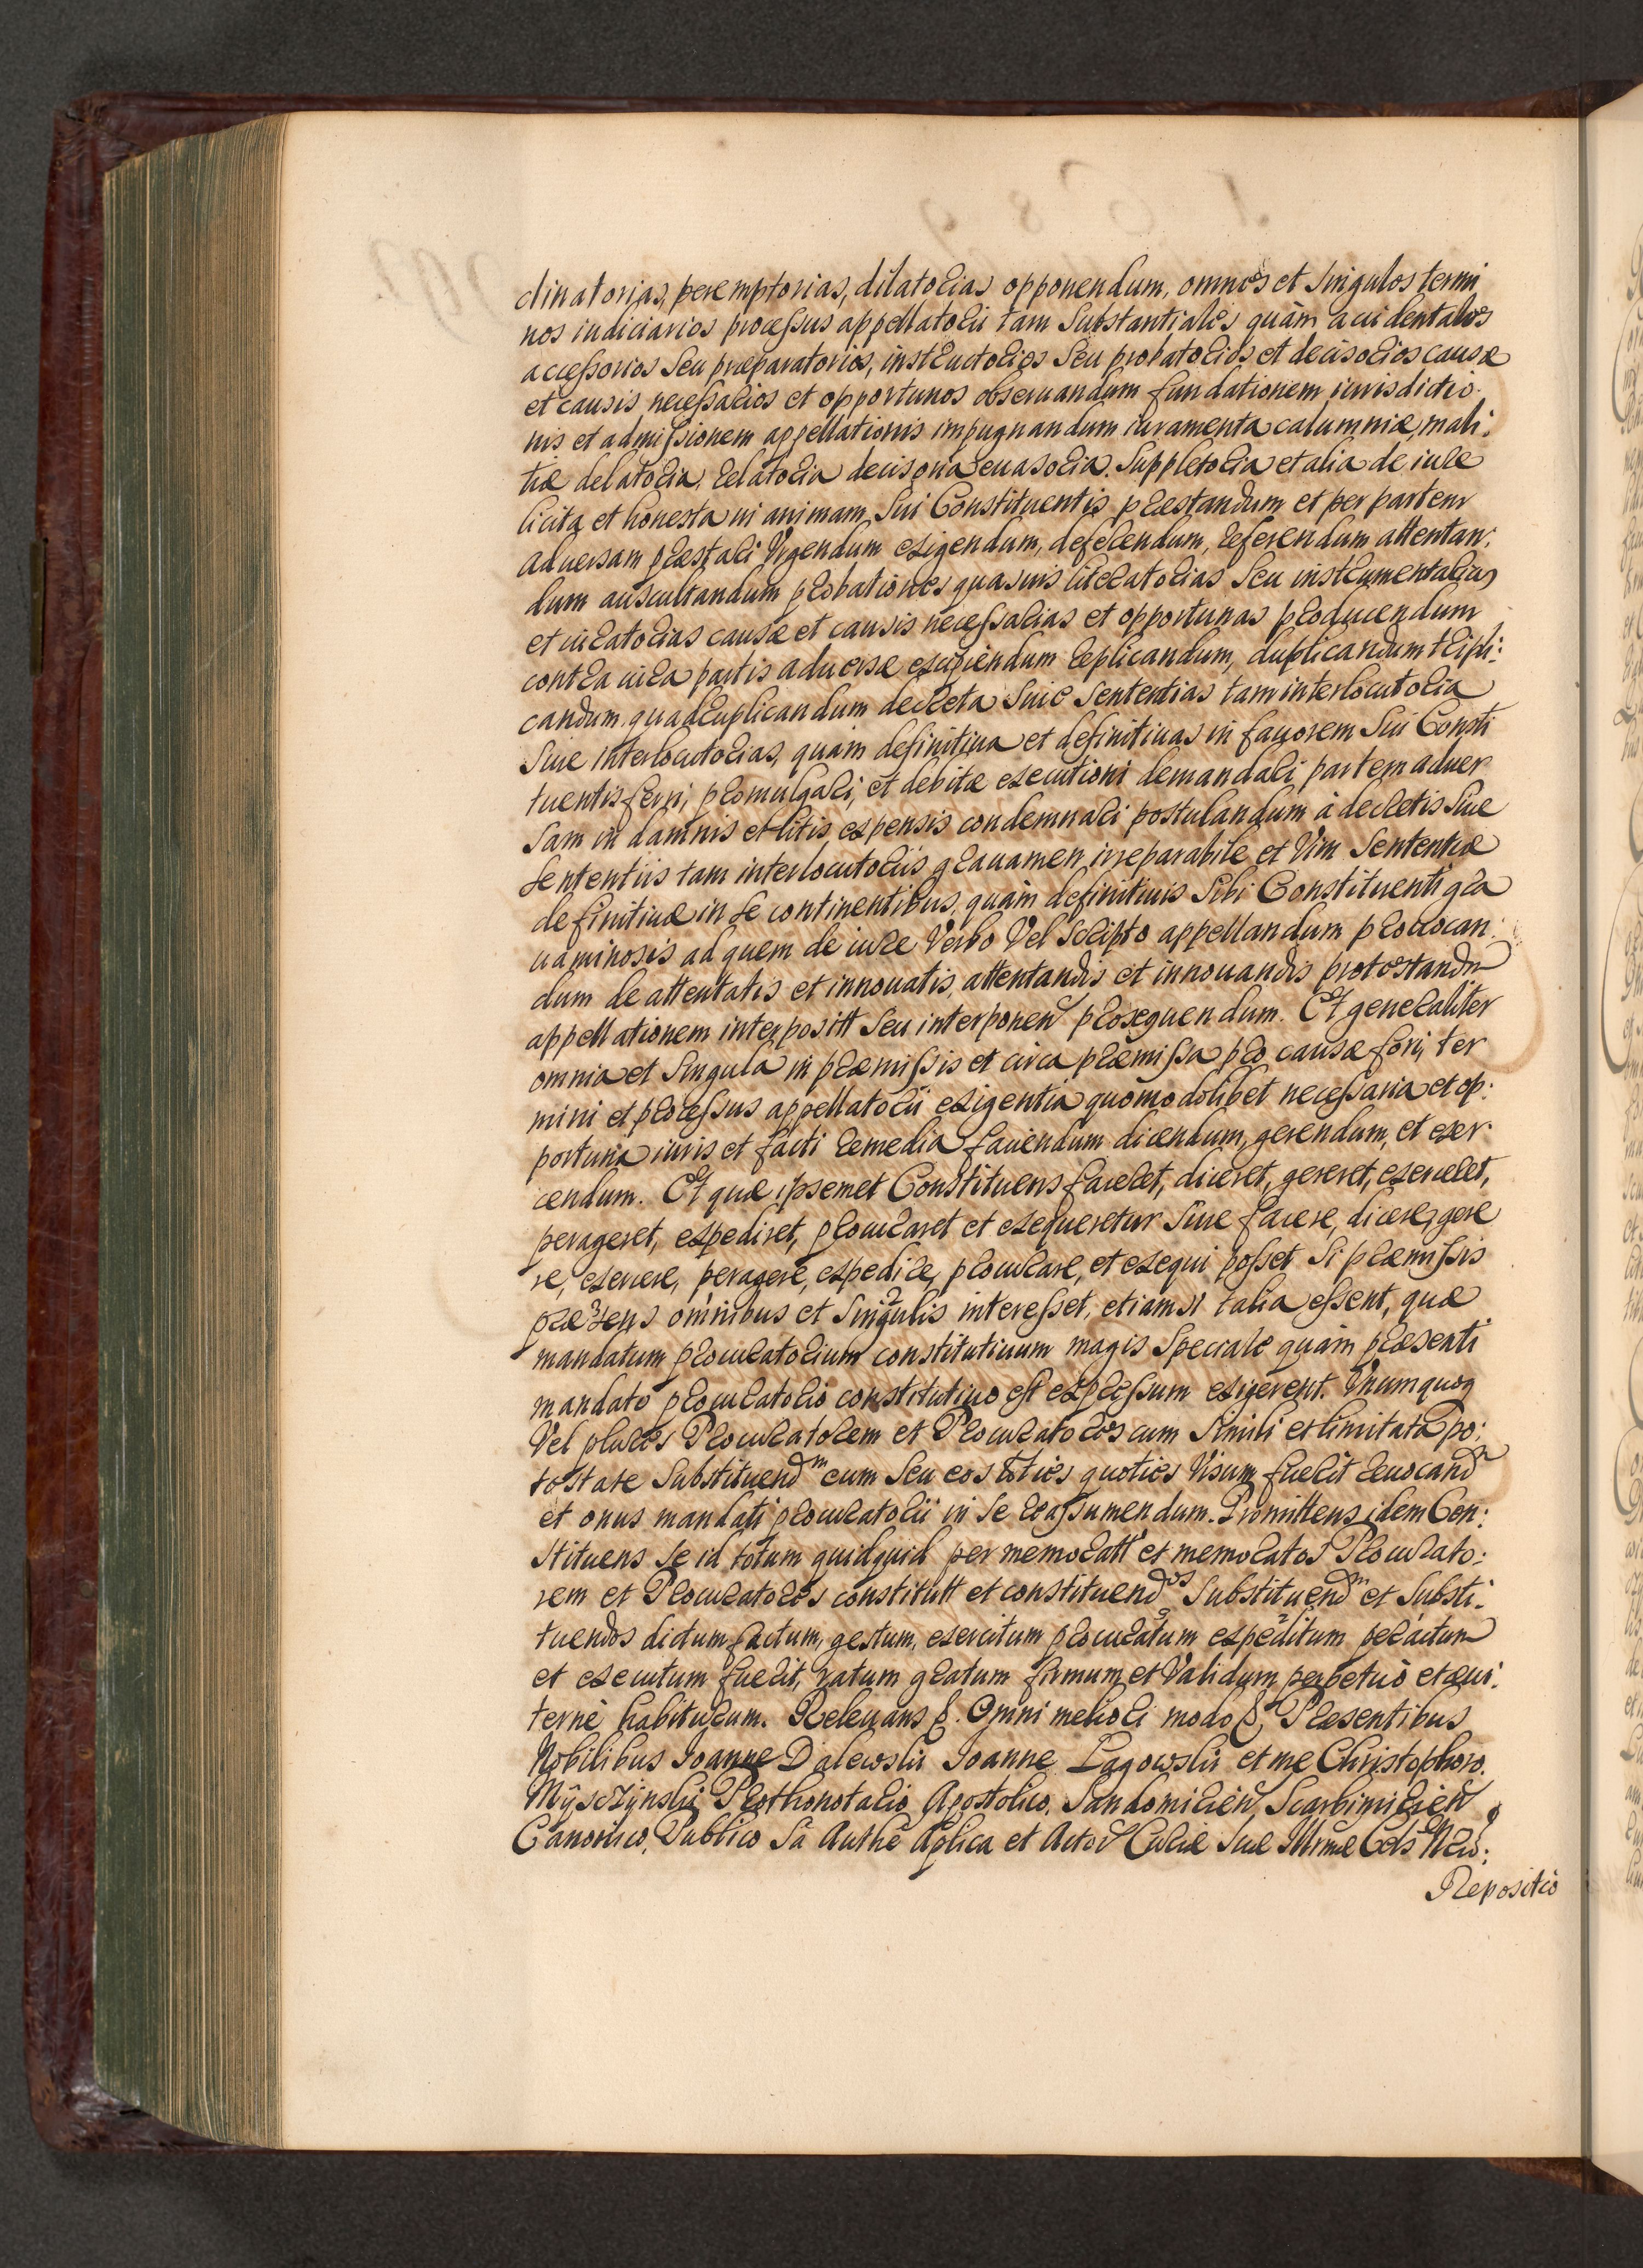 clinatorias, peremptorias, dilatorias opponendum, omnes et singulos termi
nos iudiciarios processus appellatorii tam substantiales quàm accidentales
accessorios seu præparatorios, instructorios seu probatorios et decisorios causæ
et causis necessarios et opportunos obseruandum fundationem iurisdictio
nis et admissionem appellationis impugnandum iuramenta calumniæ, mali:
tiæ delatoria, relatoria decisoria euasoria. Suppletoria et alia de iure
licita et honesta in animam sui Constituentis præstandum et per partem
aduersam præstari Vrgendum exigendum, deferendum, referendum attentan:
dum auscultandum probationes quasuis literatorias seu instrumentalias
et iuratorias causæ et causis necessarias et opportunas producendum
contra iura partis aduersæ excipiendum replicandum, duplicandum tripli:
candum quadruplicandum decreta siue sententias tam interlocutoria
siue interlocutorias, quàm definitiua et definitiuas in fauorem sui Consti
tuentis ferri, promulgari, et debitæ executioni demandari partem aduer
sam in damnis et litis expensis condemnari postulandum à decretis siue
sententiis tam interlocutoriis grauamen irreparabile et Vim sententiæ
definitiuæ in se continentibus, quàm definitiuis sibi Constituenti gra
uaminosis ad quem de iure Verbo Vel scripto appellandum prouocan:
dum de attentatis et innouatis, attentandis et innouandis protestandu
appellationem interpositt seu interponen prosequendum. Et generaliter
omnia et singula in præmissis et circa præmissa pro causæ fori, ter
mini et processus appellatorii exigentia quomodolibet necessaria et op:
portuna iuris et facti remedia faciendum dicendum, gerendum, et exer
cendum. Et quæ ipsemet Constituens faceret, diceret, gereret, exerceret,
perageret, expediret, procuraret et exequeretur siue facere, dicere, gere
re, exercere, peragere, expedire, procurare, et exequi posset si præmissis
præsens omnibus et singulis interesset, etiamsi talia essent, quæ
mandatum procuratorium constitutiuum magis speciale quàm præsenti
mandato procuratorio constitutiuo est expressum exigerent. Vnumquoq
Vel plures Procuratorem et Procuratores cum simili et limitata po:
testate substituend^m eum seu eos toties quoties Visum fuerit reuocand^m
et onus mandati procuratorii in se reassumendum. Promittens idem Con:
stituens se id totum quidquid per memoratt et memoratos Procurato:
rem et Procuratores constitutt et constituend^os substituend^m et substi:
tuendos dictum factum, gestum, exercitum procuratum expeditum peractum
et executum fuerit, ratum gratum firmum et Validum perpetuò et æui:
ternè habiturum. Releuans &. Omni meliori modo &, Præsentibus
Nobilibus Ioanne Dalewski Ioanne Lagowski et me Christophoro
Mÿsczÿnski Prothonotario Apostolico, Sandomirien, Scarbimirien
Canonico, Publico Sa Authe Aplica et Actor Curiæ suæ Illrmæ Cels Nrio:
Repositio